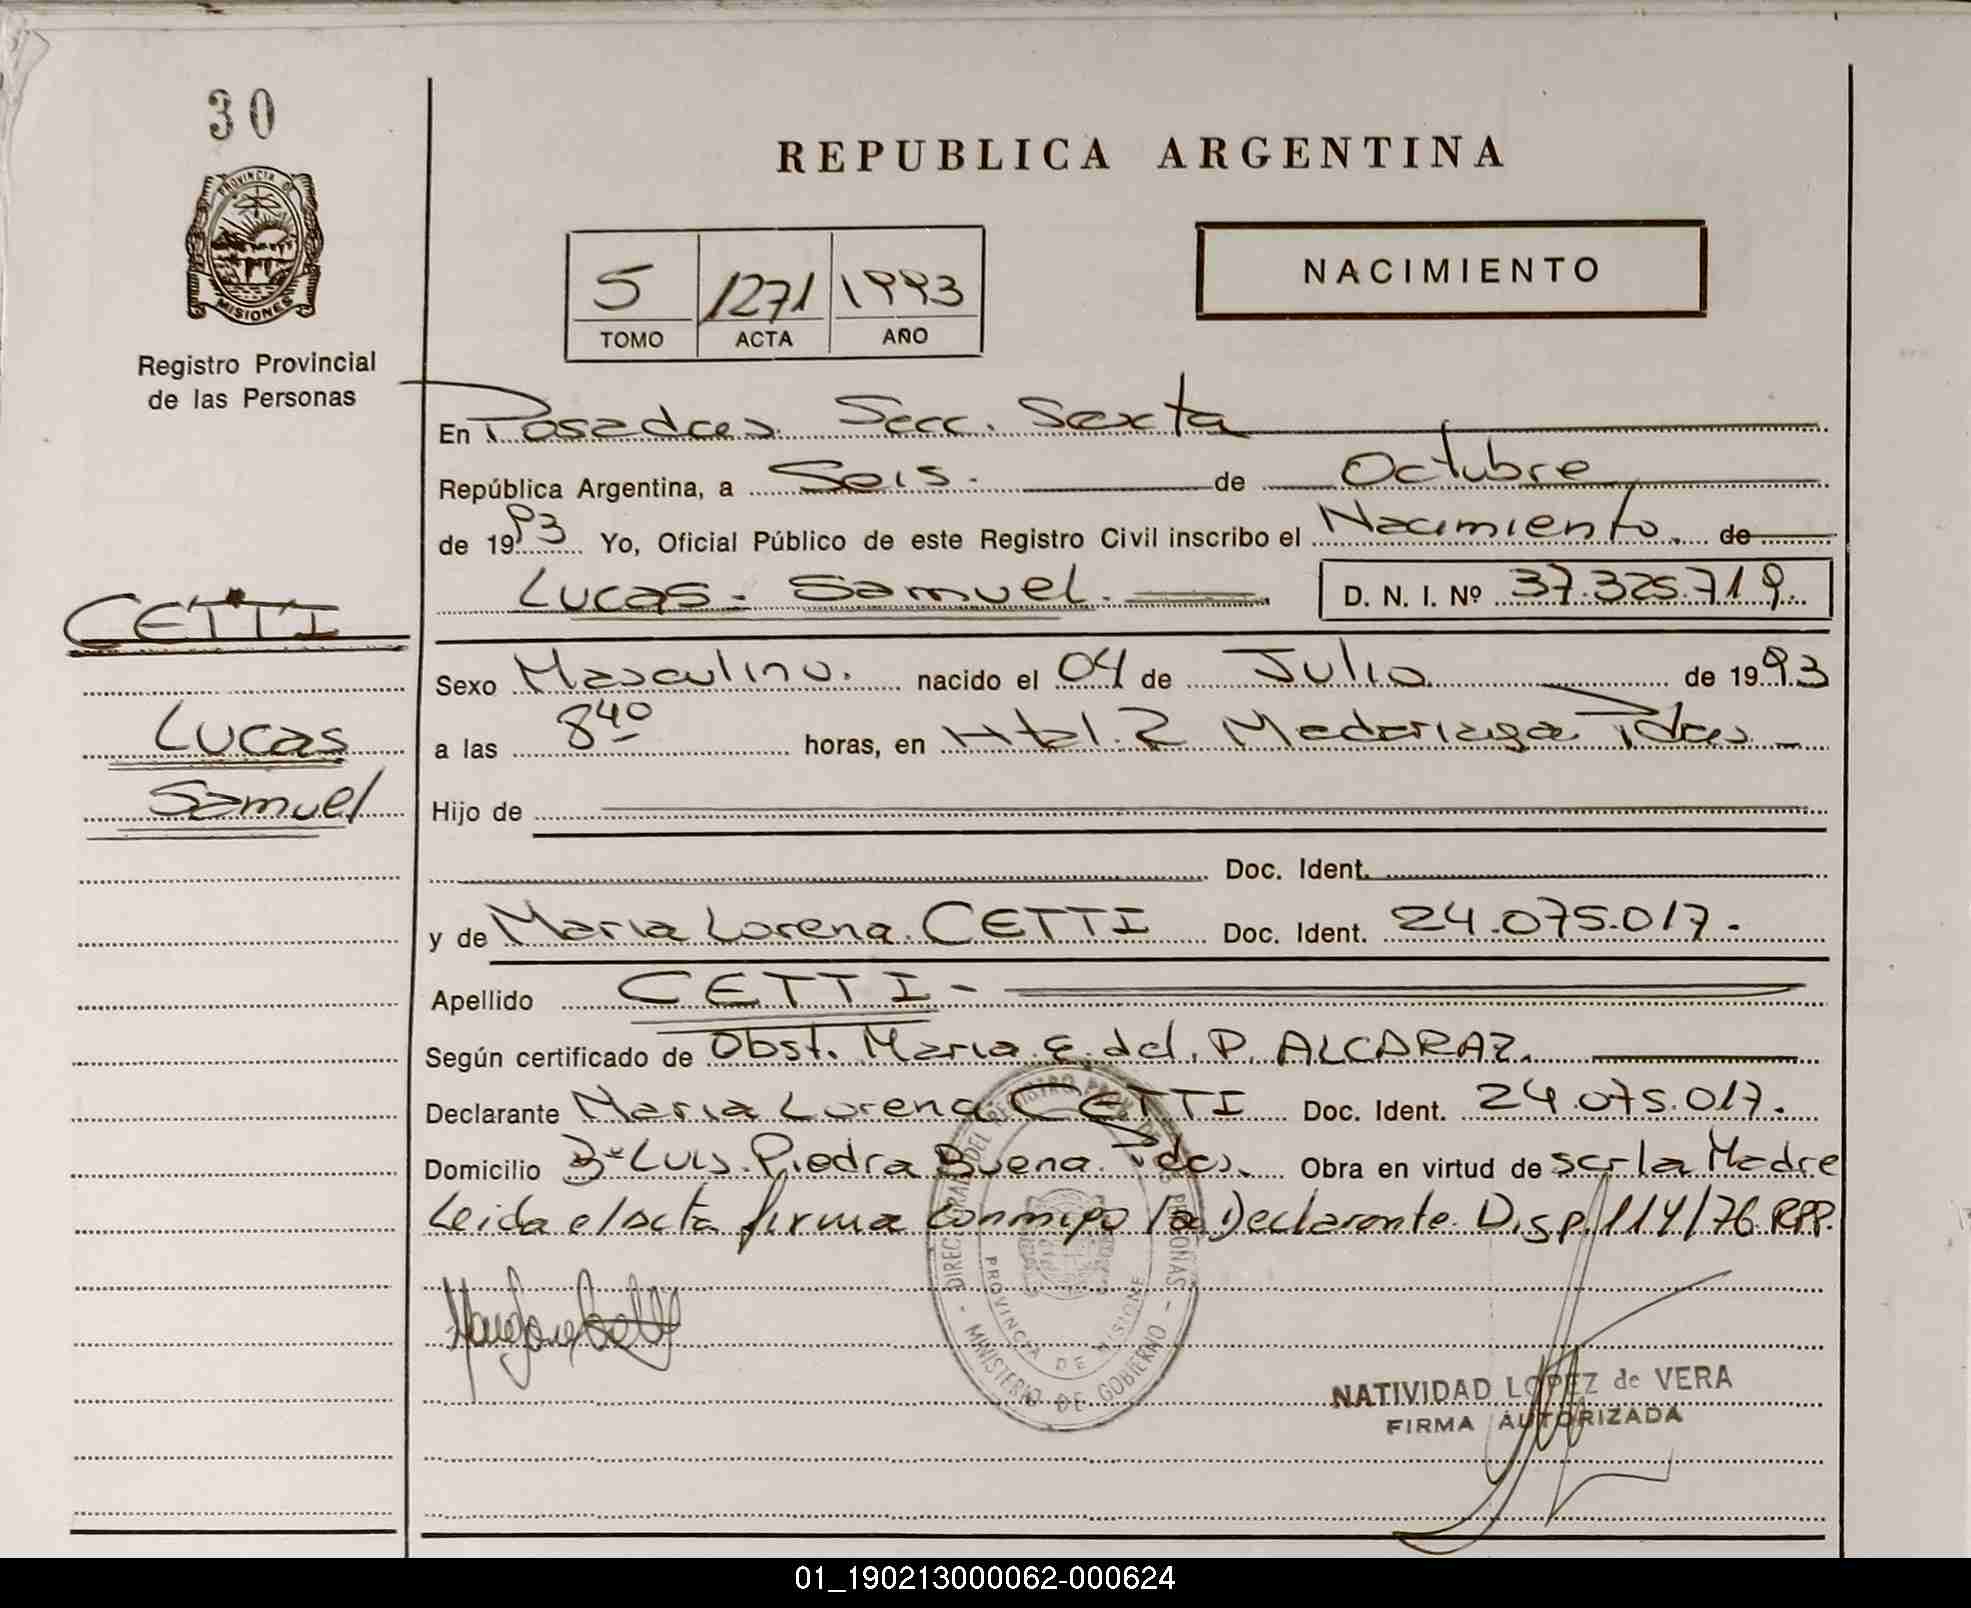 30
PROVINCIA DE
MISIONES
Registro Provincial
de las Personas
REPUBLICA ARGENTINA
5 1271 1993
TOMO ACTA AÑO
NACIMIENTO
En Posadas Secc. Sexta
República Argentina, a Seis. de Octubre
de 1993 Yo, Oficial Público de este Registro Civil inscribo el Nacimiento. de
Lucas - Samuel. D. N. I. Nº 37.325.719.
CETTI
Lucas
Samuel
Sexo Masculino. nacido el 04 de Julio de 1993
a las 8 40 horas, en Htal. 2 Madariaga Pdas
Hijo de
Doc. Ident.
y de Maria Lorena CETTI Doc. Ident. 24.075.017.
Apellido CETTI -
Según certificado de Obst. Maria E. del P. ALCARAZ.
Declarante Maria Lorena CETTI Doc. Ident. 24.075.017.
Domicilio Bº Luis Piedra Buena Pdas. Obra en virtud de ser la Madre
Leida el acta firma conmigo la Declarante. Disp. 114/76 RPP.
PROVINCIA DE MISIONES
MINISTERIO DE GOBIERNO
NATIVIDAD LOPEZ de VERA
FIRMA AUTORIZADA
01_190213000062-000624